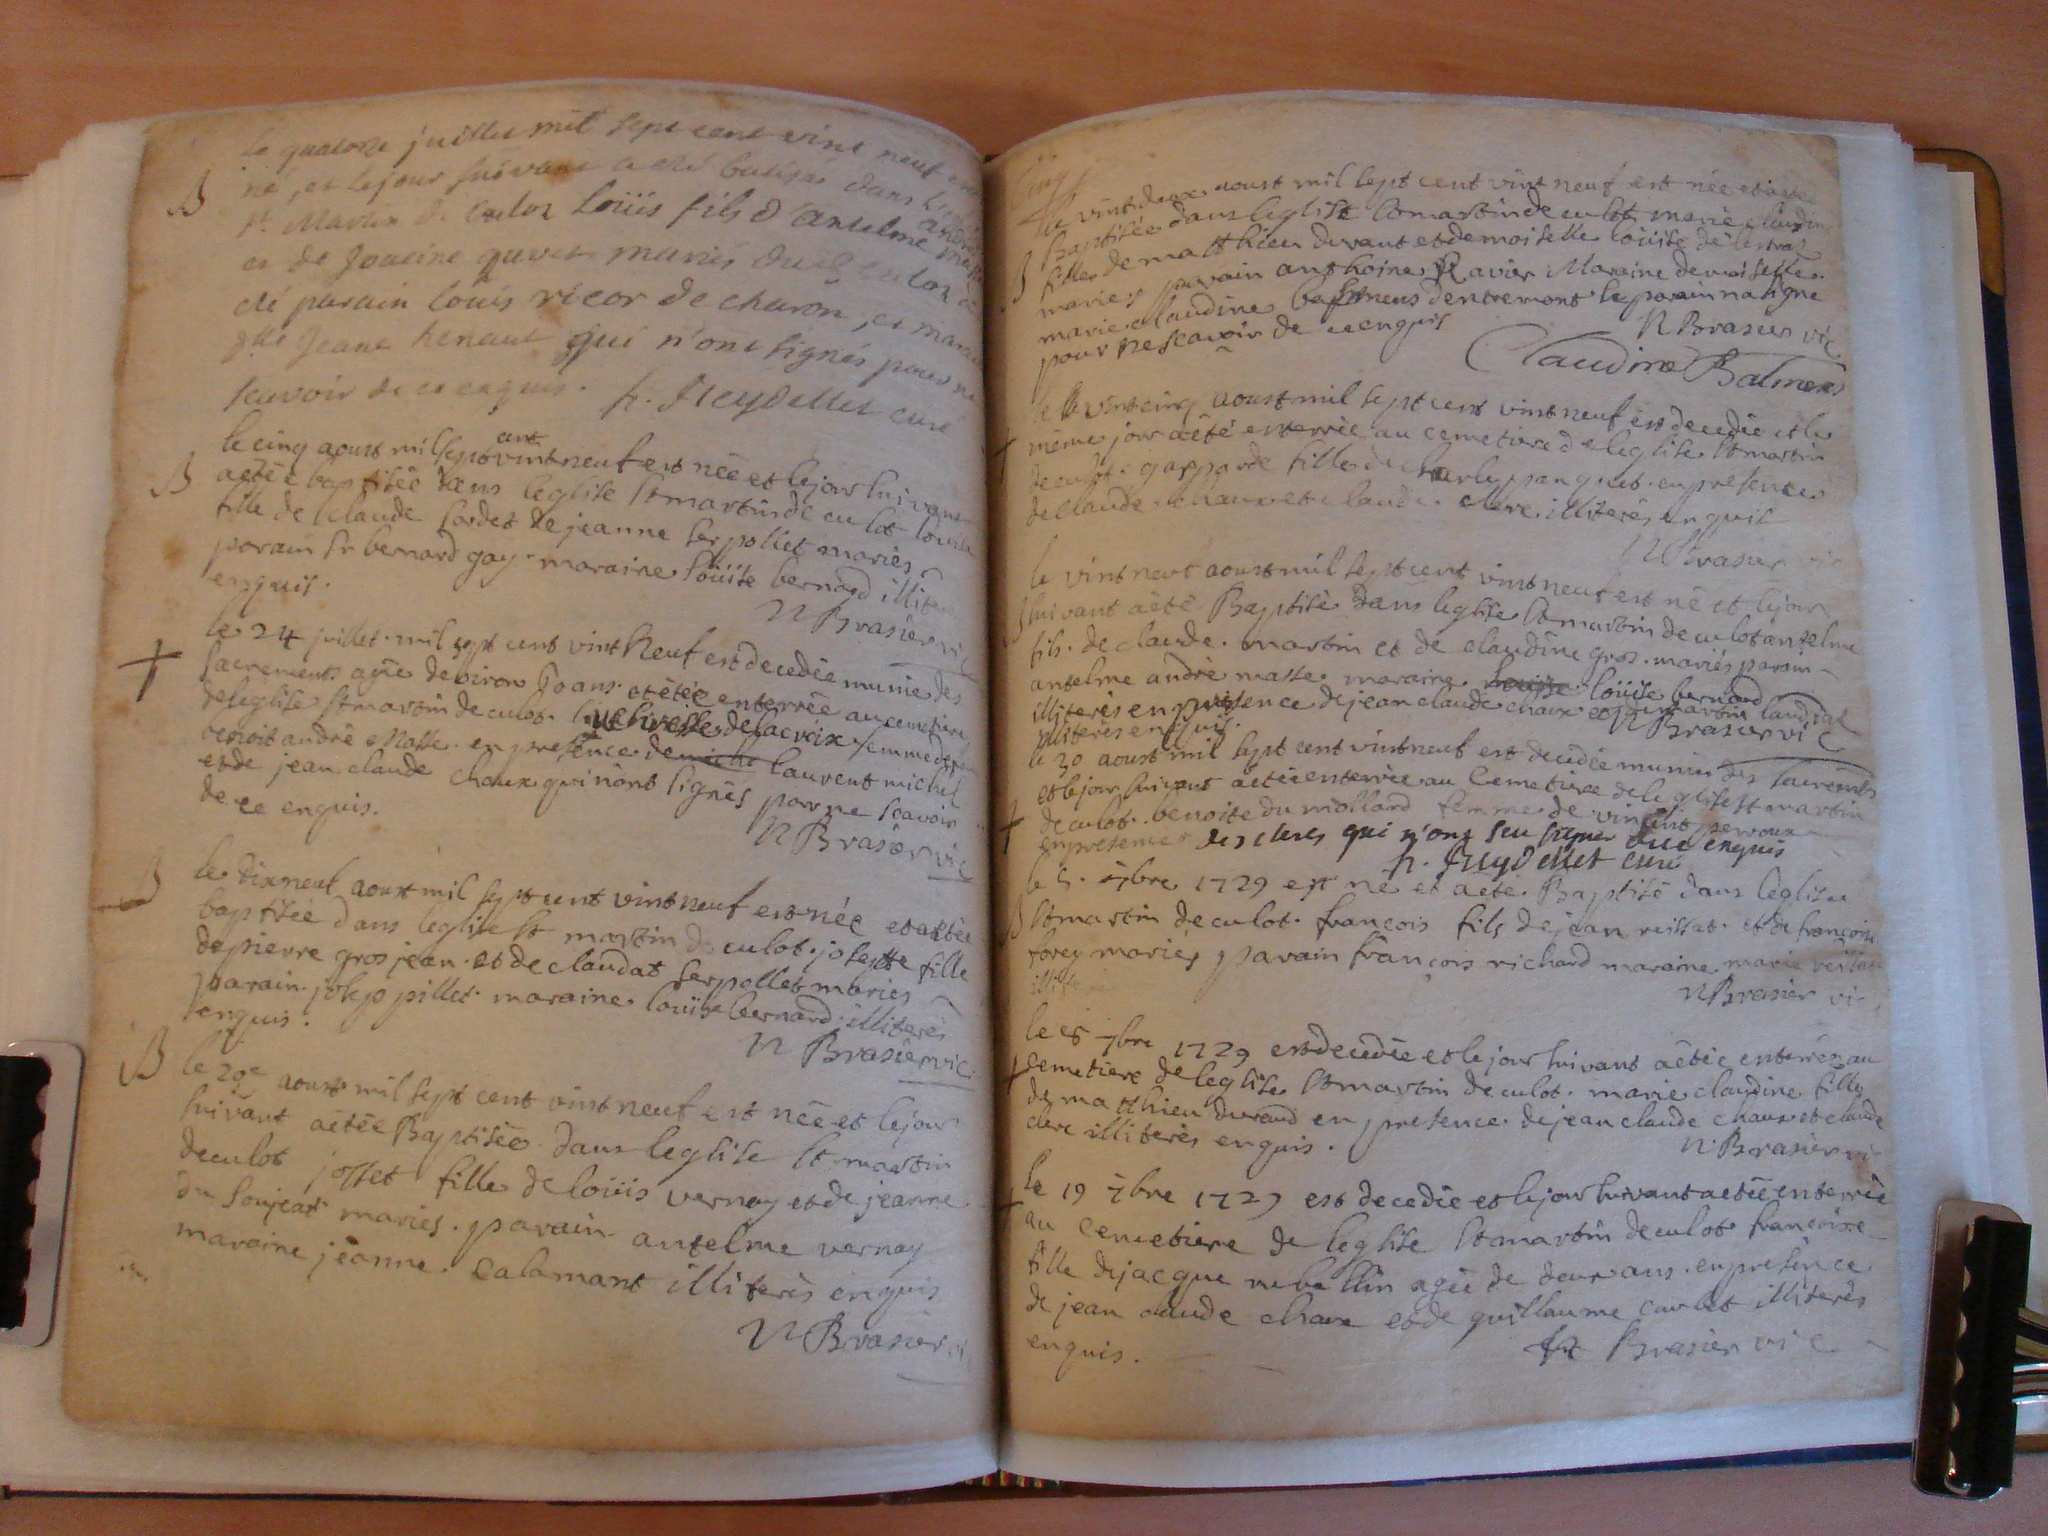 le quatorze juillet mil sept cent vint neuf est
B né, et le jour suivant a esté batisé dans
St. Martin de Culoz Loüis fils d'anselme andré
et de Jouine mariés Culoz
été parain louis ricor de charon, et marai
Jeane henaut qui n'ont signés pour ne
scavoir de ce enquis. h. Jleydellet curé
cent
le cinq aoust mil sept vint neuf est née et le jour suivant
B aétée baptisée dans leglise St martin de culot Louise
fille de claude sordet de jeanne serpollet mariés
parain Sr bernard gay. maraine loüise bernard illiterés
enquis.
N Brasier vic
le 24 juillet mil sept cent vint neuf est decedée munie des
sacrements agée denviron ans et étée enterrée au cemetiere
deleglise St martin de culot. delacroix femme de
benoit andré Masse. en presence de laurent michel
et de jean claude chaux qui nont signés par ne scavoir
de ce enquis.
N Brasier vic
B le dixneuf aoust mil sept cent vint neuf est née et aétée
baptisée dans leglise St martin de culot. josepte fille
de pierre gros jean. et de claudat serpollet mariés
parain. josep pillet. maraine. loüise bernard. illiterés
enquis.
N Brasier vic
B le 20e aoust mil sept cent vint neuf est née et le jour
suivant aétée Baptisée dans leglise St martin
deculot josset fille de loüis vernay et de jeanne
du mariés. parain anselme vernay
maraine jeanne. calamant illiterés enquis
N Brasier vic
le vint deux aoust mil sept cent vint neuf est née et aété
baptisée dans leglise St martin de culot marie claudine
B fille de matthieu durant et demoiselle loüise de lestra
mariés parain anthoine Ravier Maraine demoiselle.
marie claudine dentremont le parain na signé
pour ne scavoir de ce enquis N Brasier vic
Claudine Balmens
le vint cinq aoust mil sept cent vint neuf est decedée et le
même jour aété enterrée au cemetiere de leglise St martin
deculot. gasparde fille de charle panguet. en presence
de claude. chaux et claude. clerc. illiterés enquis
N Brasier vic
le vint neuf aoust mil sept cent vint neuf est né et le jour
suivant aété Baptisé dans leglise St martin de culot anselme
fils. de claude. martin et de claudine gros. mariés parain
anselme andré masse maraine louise loüise bernard
illiterés en presence de jean claude chaux et martin
illiterés enquis. N Brasier vic
le 30 aoust mil sept cent vint neuf est decedée munie des sacrements
et le jour suivant aétée enterrée au Cemetiere de leglise St martin
deculot. benoite du mollard femme de vincent perroux
en presence des clercs qui n'ont seu signer de ce enquis
h. Jleydellet curé
le 5. 7bre 1729 est né et aété Baptisé dans leglise
B St martin de culot. francois fils de jean reissat. et de francoise
forey mariés parain françois richard maraine marie
illite
N Brasier vic
le 7bre 1729 est decedée et le jour suivant aétée enterrée au
cemetiere de leglise St martin de culot. marie claudine fille
de matthieu durand en presence. de jean claude chaux et claude
clerc illiterés enquis. N Brasier vic
le 19 7bre 1729 est decedée et le jour suivant aétée enterrée
au cemetiere de leglise St martin de culot francoise
fille de jacque agée de deux ans. en presence
de jean claude chaux et de guillaume illiterés
enquis. N Brasier vic